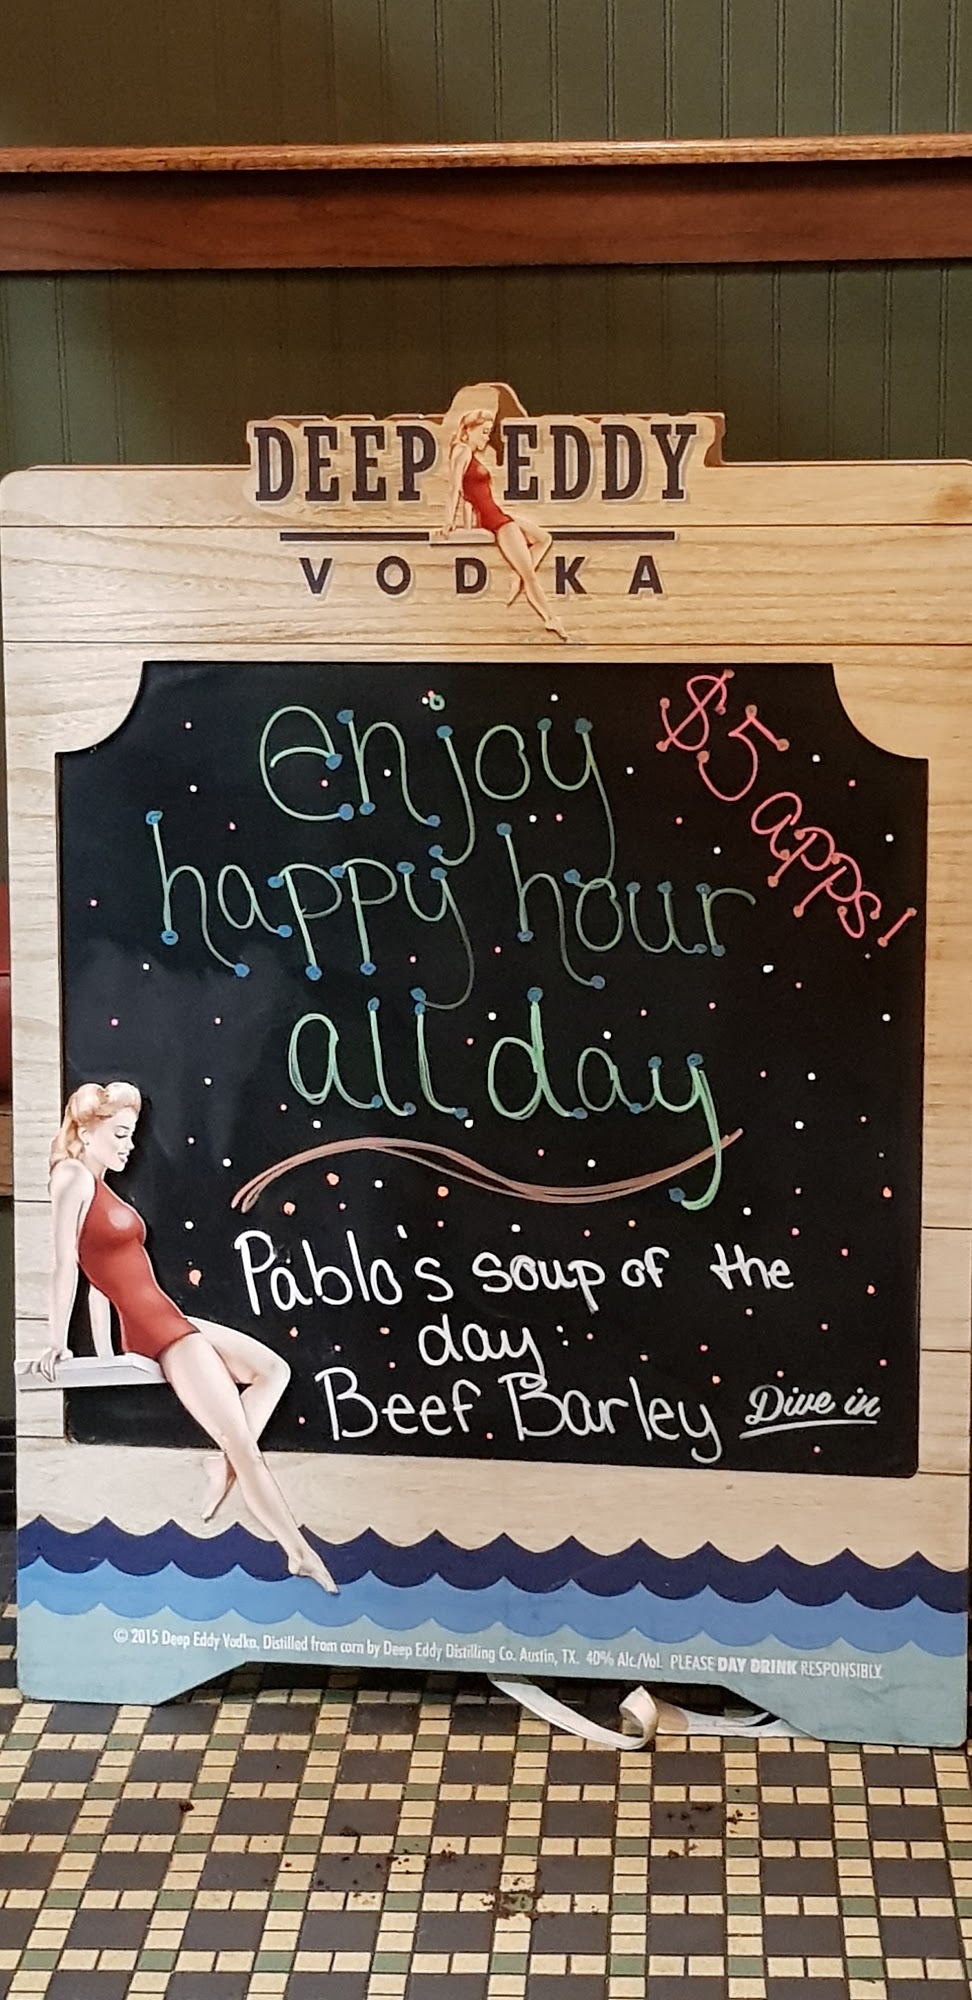 DEEP EDDY
VODKA
enjoy
happy hour
all day
$5 apps!
Pablo's soup of the
day:
Beef Barley
Dive in
© 2015 Deep Eddy Vodka, Distilled from corn by Deep Eddy Distilling Co. Austin, TX. 40% Alc./Vol. PLEASE DAY DRINK RESPONSIBLY.